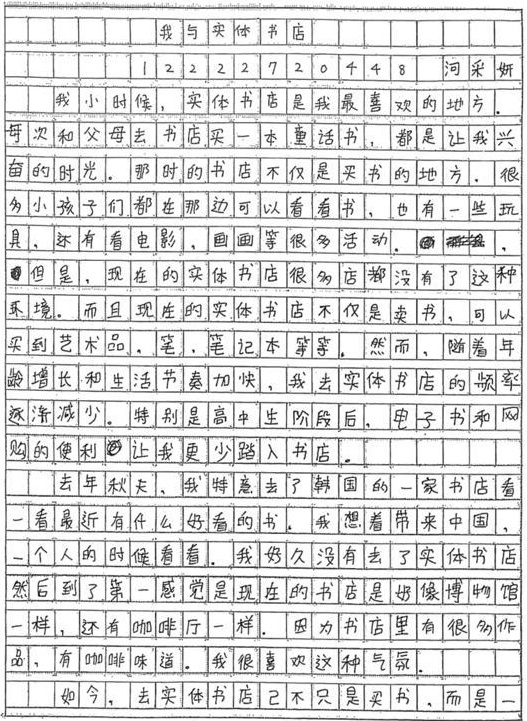 我与实体书店
12222720448 河采妍
我小时候，实体书店是我最喜欢的地方.
每次和父母去书店买一本童话书，都是让我兴
奋的时光。那时的书店不仅是买书的地方，很
多小孩子们都在那边可以看看书，也有一些玩
具，还有看电影，画画等很多活动.
但是，现在的实体书店很多店都没有了这种
环境。而且现在的实体书店不仅是卖书，可以
买到艺术品，笔，笔记本等等. 然而，随着年
龄增长和生活节奏加快，我去实体书店的频率
逐渐减少。特别是高中生阶段后，电子书和网
购的便利让我更少踏入书店。
去年秋天，我特意去了韩国的一家书店看
一看最近有什么好看的书. 我想着带来中国，
一个人的时候看看. 我好久没有去了实体书店
然后到了第一感觉是现在的书店是好像博物馆
一样，还有咖啡厅一样. 因为书店里有很多作
品，有咖啡味道。我很喜欢这种气氛.
如今，去实体书店已不只是买书，而是一